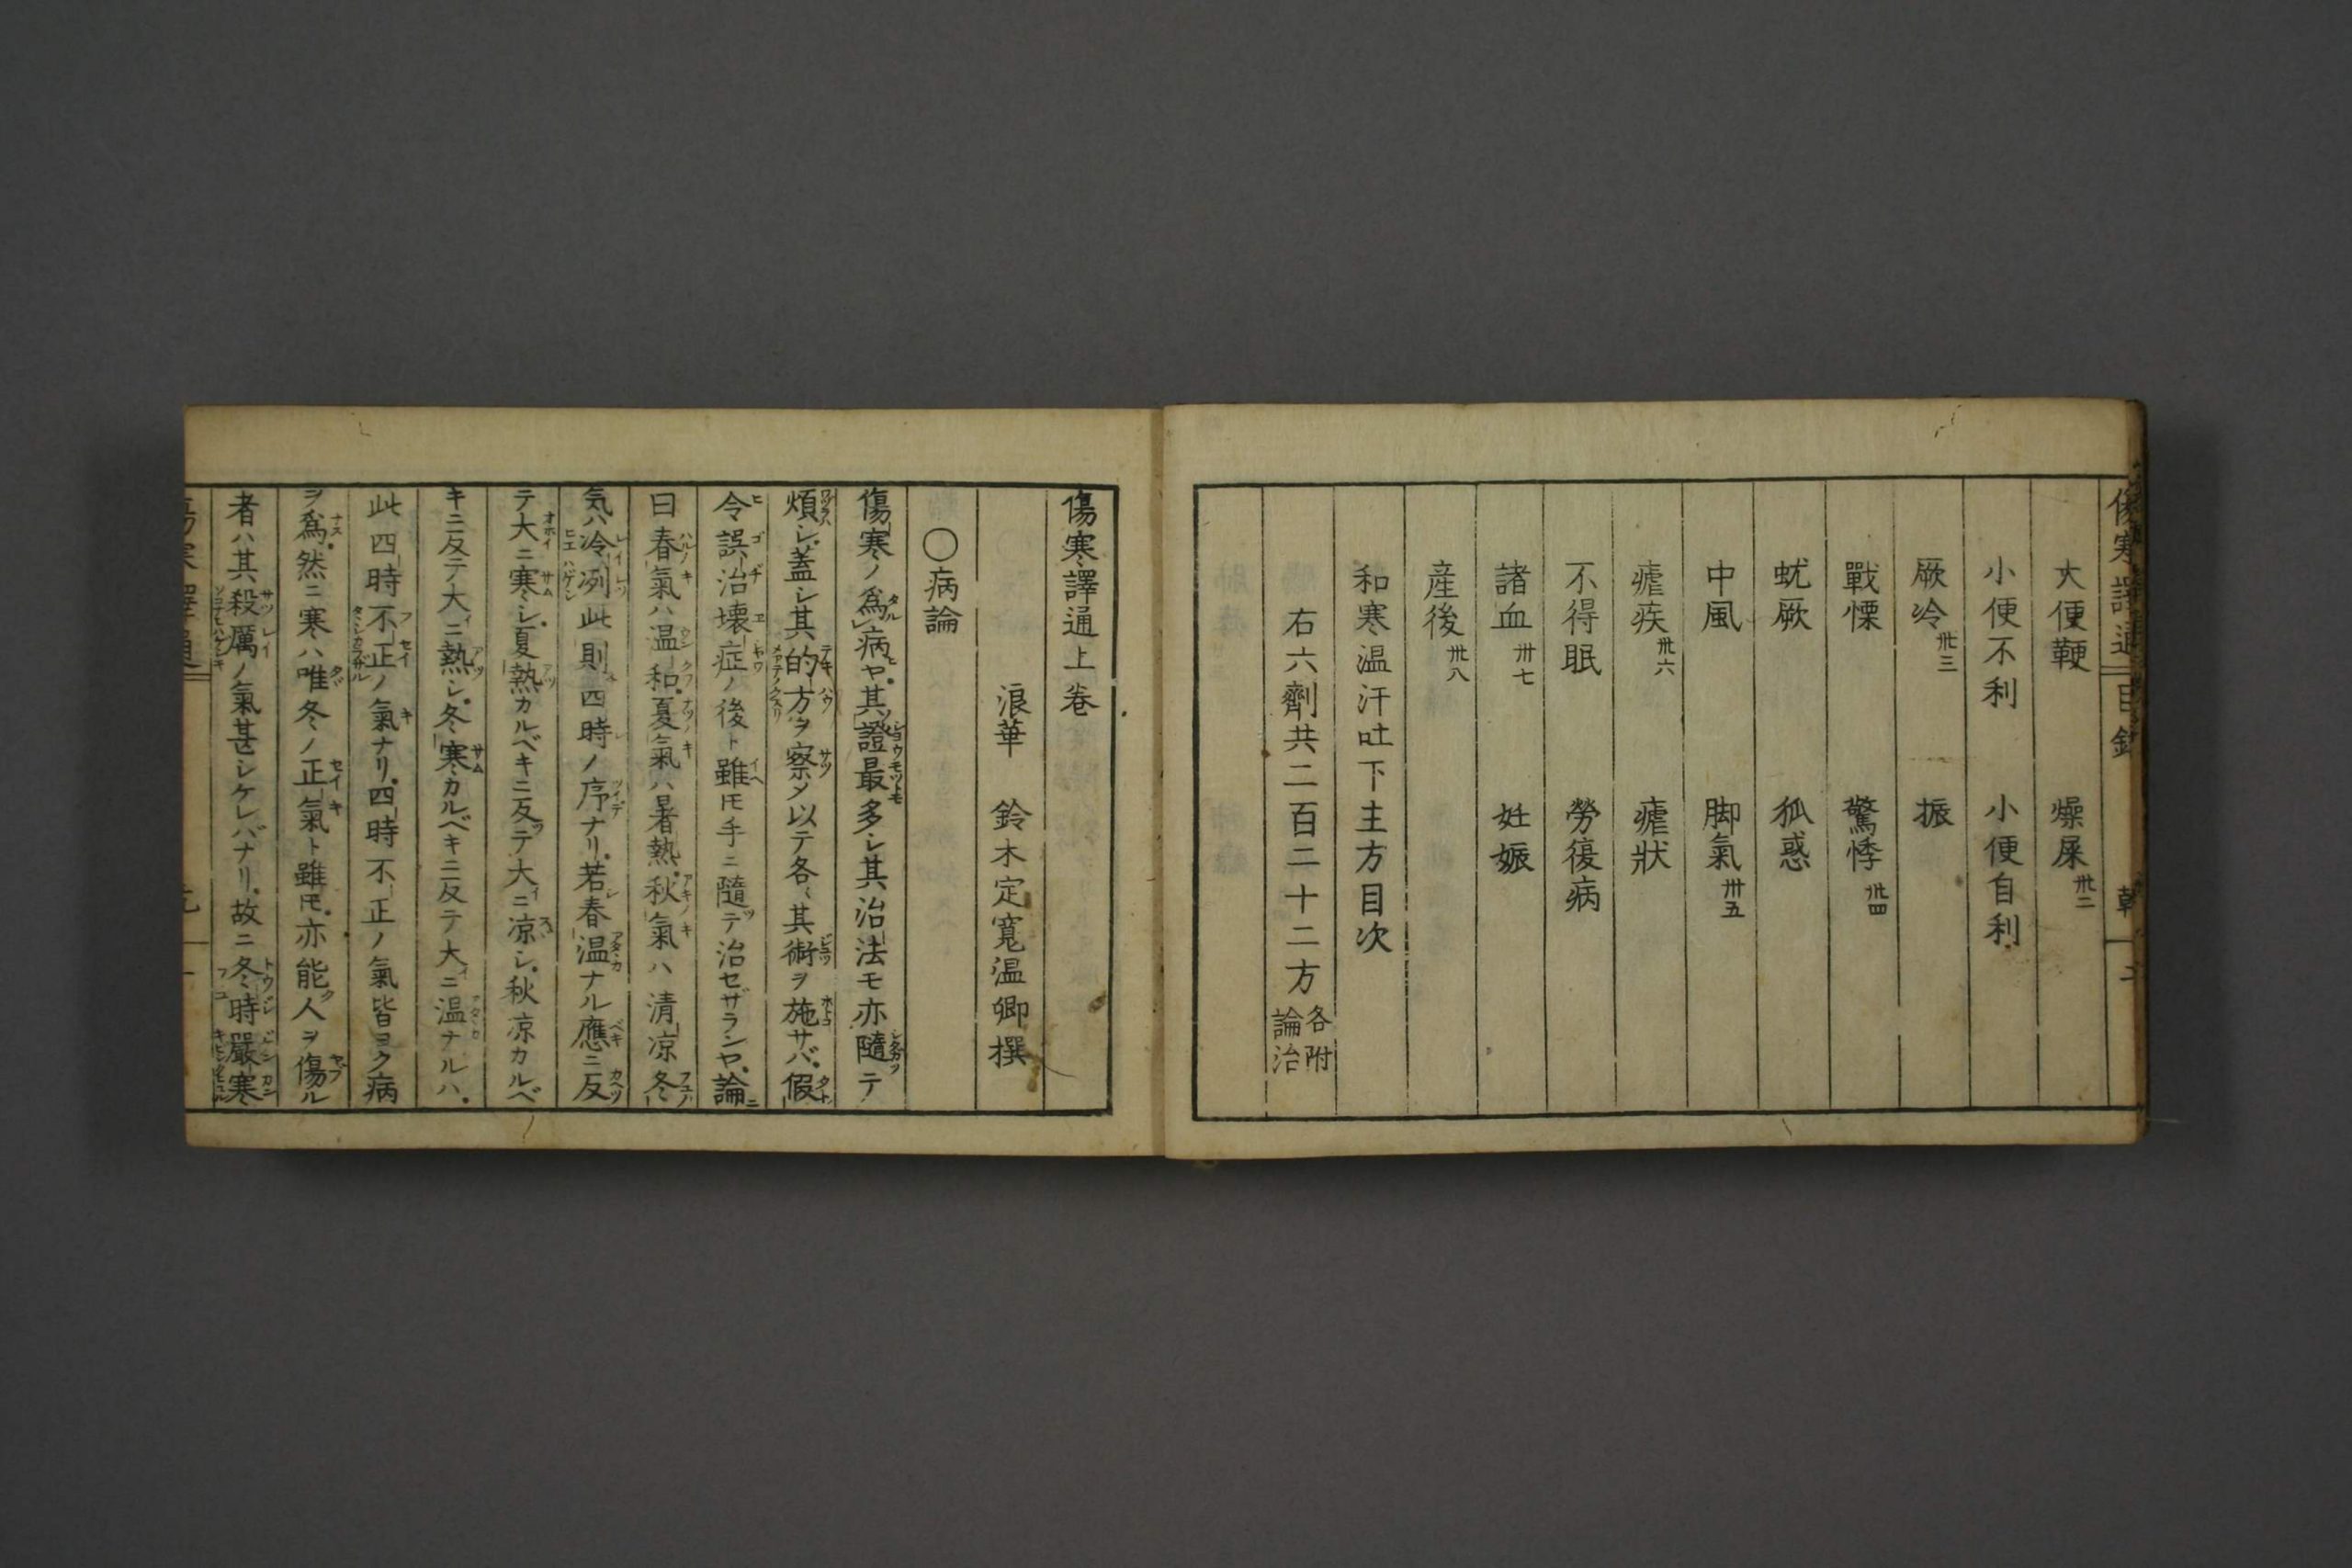 傷寒譯通 目録
大便鞕 燥屎 卅二
小便不利 小便自利
厥冷 卅三 振
戰慄 驚悸 卅四
蚘厥 狐惑
中風 脚氣 卅五
瘧疾 卅六 瘧狀
不得眠 勞復病
諸血 卅七 妊娠
産後 卅八
和寒温汗吐下主方目次
右六劑共二百二十二方 各附論治
傷寒譯通上巻
浪華 鈴木定寬温卿撰
〇病論
傷寒ノ爲病ヤ其證最多シ其治法モ亦隨テ
煩シ蓋シ其的方ヲ察メ以テ各〻其術ヲ施サバ假
令誤治壊症ノ後ト雖𪜈手ニ隨テ治セザランヤ論
曰春氣ハ温和夏氣ハ暑熱秋氣ハ清凉冬
気ハ冷冽此則四時ノ序ナリ若春温ナル應ニ反
テ大ニ寒シ夏熱カルベキニ反テ大ニ凉シ秋凉カルベ
キニ反テ大ニ熱シ冬寒カルベキニ反テ大ニ温ナルハ
此四時不正ノ氣ナリ四時不正ノ氣皆ヨク病
ヲ爲然ニ寒ハ唯冬ノ正氣ト雖𪜈亦能人ヲ傷ル
者ハ其殺厲ノ氣甚シケレバナリ故ニ冬時嚴寒